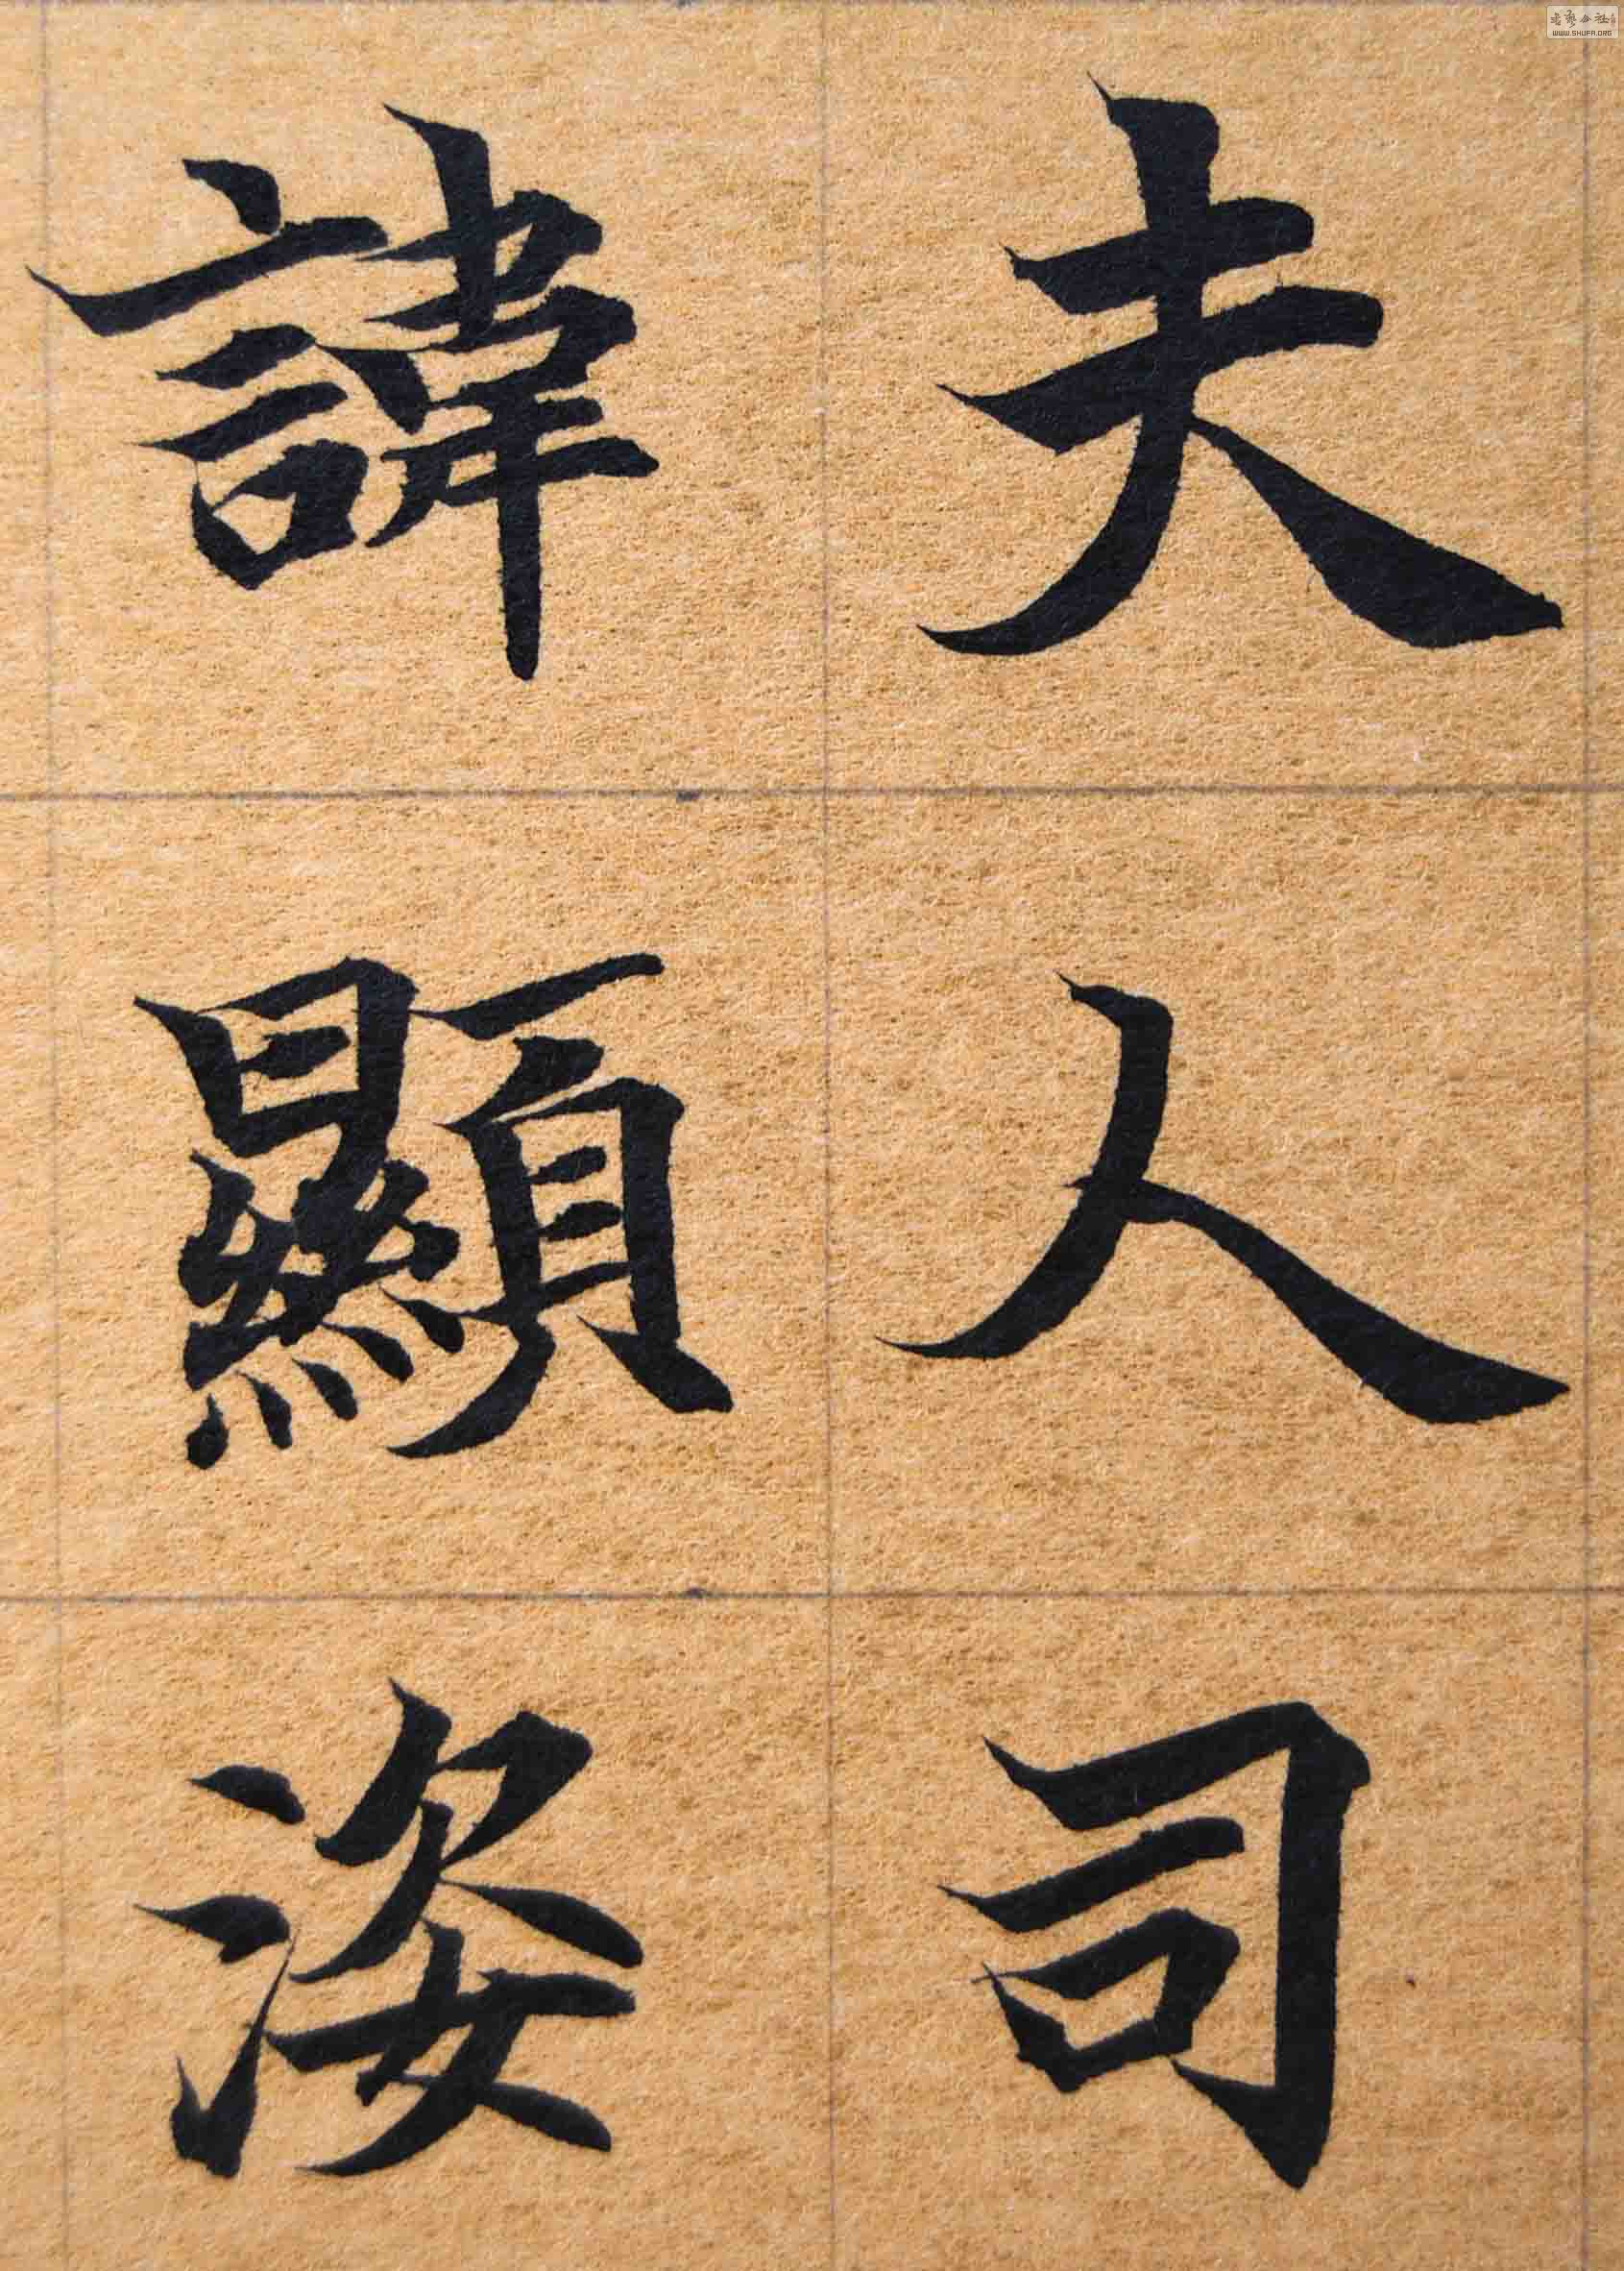 夫人司
諱顯姿
书艺公社
WWW.SHUFA.ORG